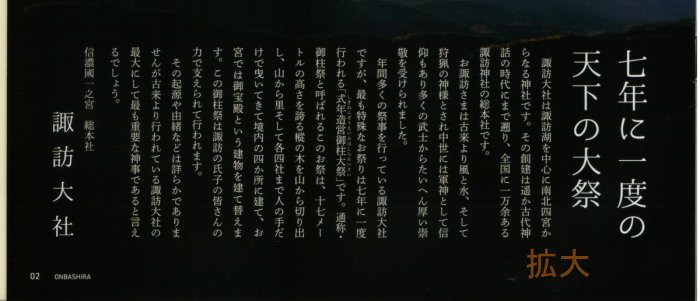 七年に一度の
天下の大祭
諏訪大社は諏訪湖を中心に南北四宮か
らなる神社です。その創建は遥か古代神
話の時代にまで遡り、全国に一万余ある
諏訪神社の総本社です。
お諏訪さまは古来より風と水、そして
狩猟の神様とされ中世には軍神として信
仰もあり多くの武士からたいへん厚い崇
敬を受けられました。
年間多くの祭事を行っている諏訪大社
ですが、最も特殊なお祭りは七年に一度
行われる「式年造営御柱大祭」です。通称・
御柱祭と呼ばれるこのお祭は、十七メー
トルの高さを誇る樅の木を山から切り出
し、山から里そして各四社まで人の手だ
けで曳いてきて境内の四か所に建て、お
宮では御宝殿という建物を建て替えま
す。この御柱祭は諏訪の氏子の皆さんの
力で支えられて行われます。
その起源や由緒などは詳らかでありま
せんが古来より行われている諏訪大社の
最大にして最も重要な神事であると言え
るでしょう。
信濃國一之宮 総本社
諏訪大社
02 ONBASHIRA
拡大